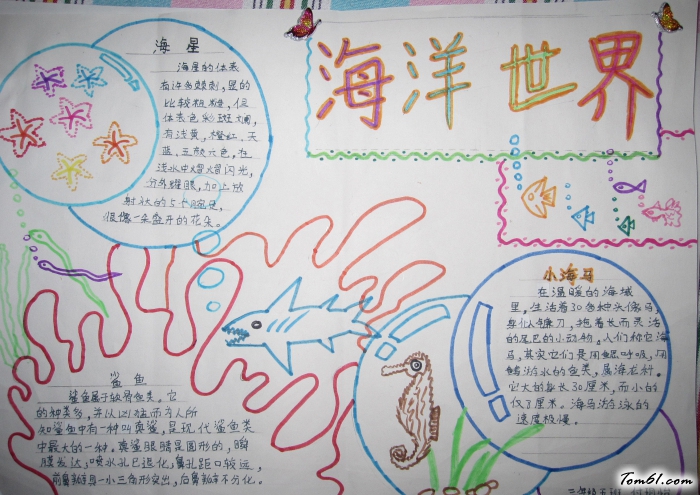 海洋世界
海星
海星的体表
有许多棘刺,显的
比较粗糙,但
体表色彩斑斓,
有浅黄,橙红,天
蓝,五颜六色,在
浅水中熠熠闪光,
分外耀眼,加上放
射状的5个腕足,
很像一朵盛开的花朵。
小海马
在温暖的海域
里,生活着30多种头像马,
身似镰刀,抱着长而灵活
的尾巴的小动物。人们称它海
马,其实它们是用鳃呼吸,用
鳍游水的鱼类,属海龙科。
它大的身长30厘米,而小的
仅7厘米。海马游泳的
速度极慢。
鲨鱼
鲨鱼属于软骨鱼类。它
的种类多,并以凶猛而为人所
知鲨鱼中有一种叫真鲨,是现代鲨鱼类
中最大的一种。真鲨眼睛是圆形的,瞬
膜发达,喷水孔已退化,鼻孔距口较远,
前鼻瓣具一小三角形突出,后鼻瓣不分化。
Tom61.com